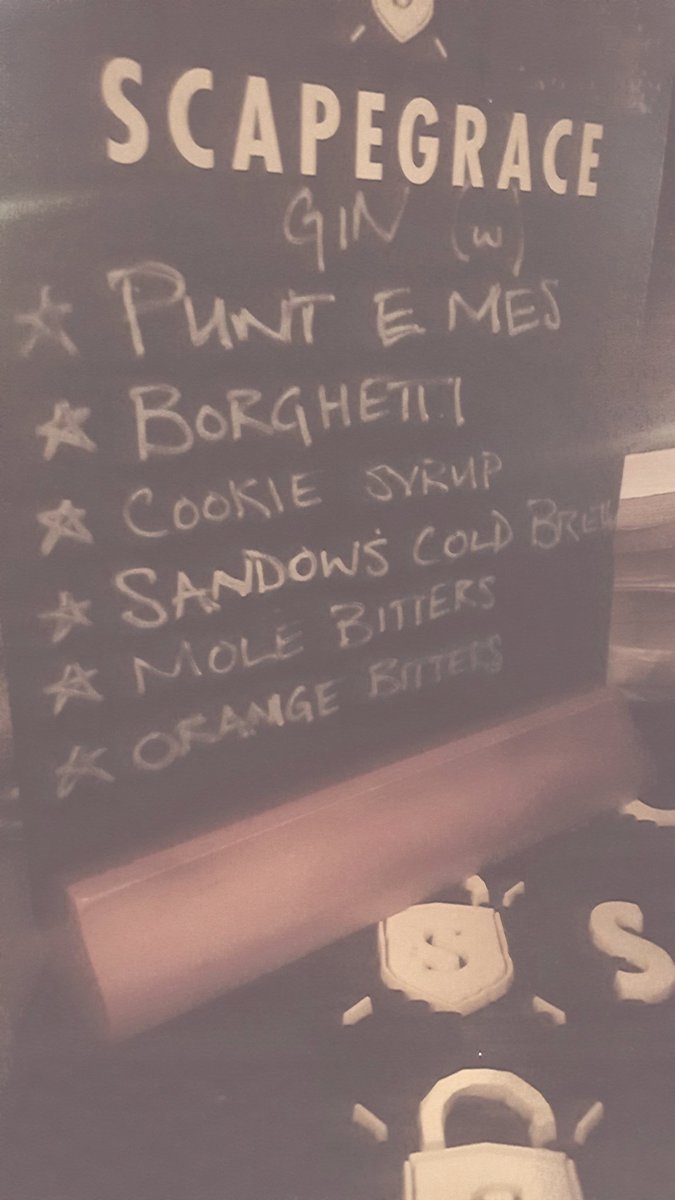 SCAPEGRACE
GIN (w)
☆ PUNT E MES
☆ BORGHETTI
☆ COOKIE SYRUP
☆ SANDOWS COLD BREW
☆ MOLE BITTERS
☆ ORANGE BITTERS
S
S